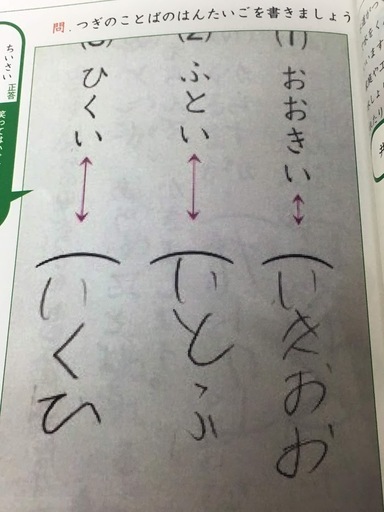 問.つぎのことばのはんたいごを書きましょう
(1) おおきい ↔ (いきおお
(2) ふとい ↔ (いとふ
(3) ひくい ↔ (いくひ
正答
ちいさい